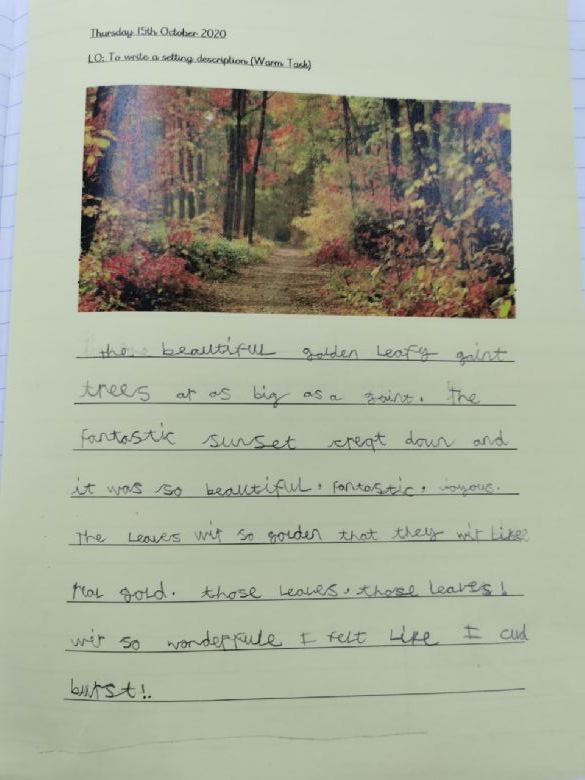 Thursday 15th October 2020
LO: To write a setting description (Warm Task)
the beautiful golden leafy gaint
trees ar as big as a gaint. The
fantastic sunset crept down and
it was so beautiful, fantastic, joyous.
The Leaves wir so golden that they wir like
real gold. those leaves, those leaves!
wir so wonderfule I felt like I cud
burst!.